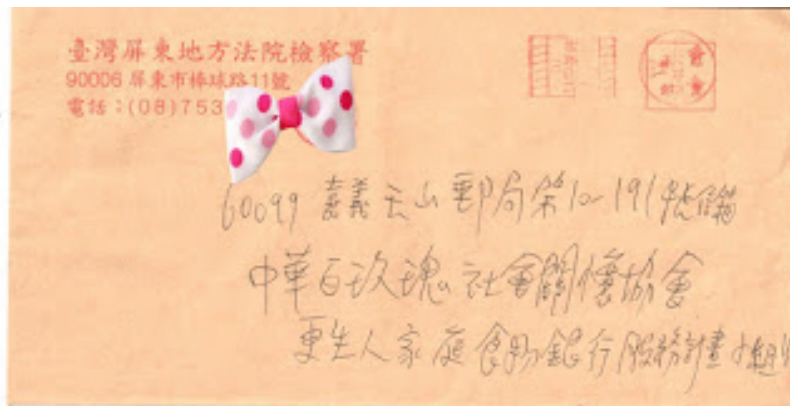 臺灣屏東地方法院檢察署
90006 屏東市棒球路11號
電話：(08)753
60099 嘉義玉山郵局第10-191號信箱
中華百玫瑰社會關懷協會
更生人家庭食物銀行服務計畫小組